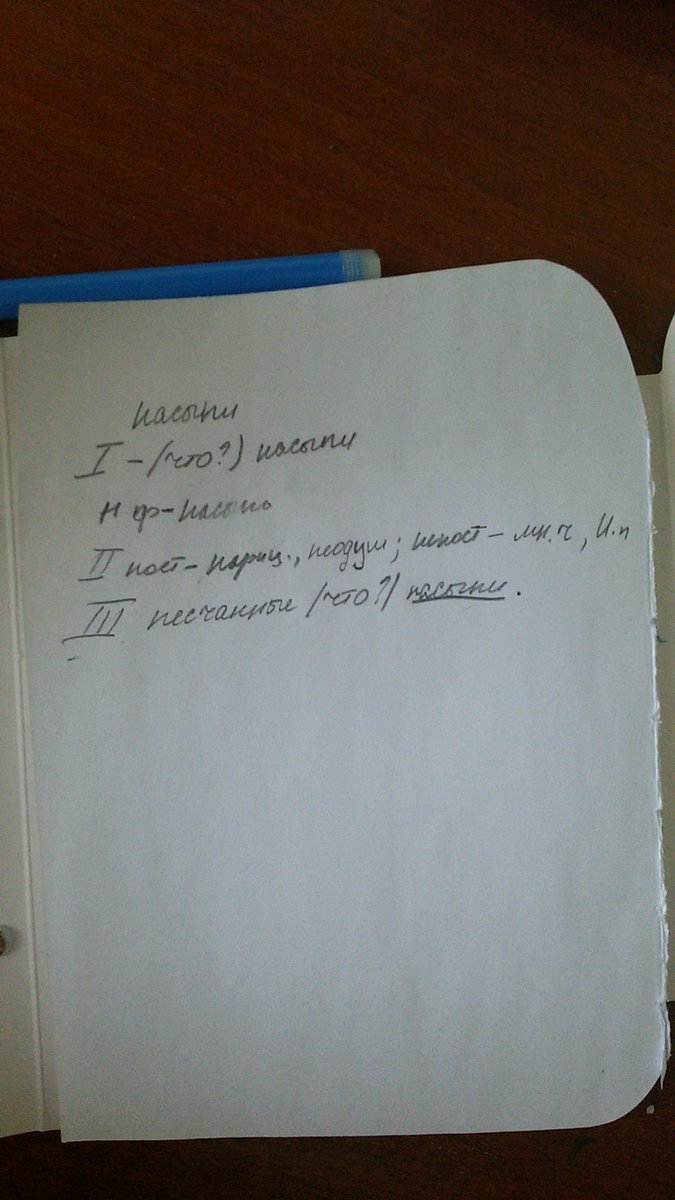 насыпи
I – (что?) насыпи
н ф – насыпь
II пост – нариц., неодуш; непост – мн.ч, И.п
III песчанные (что?) насыпи.